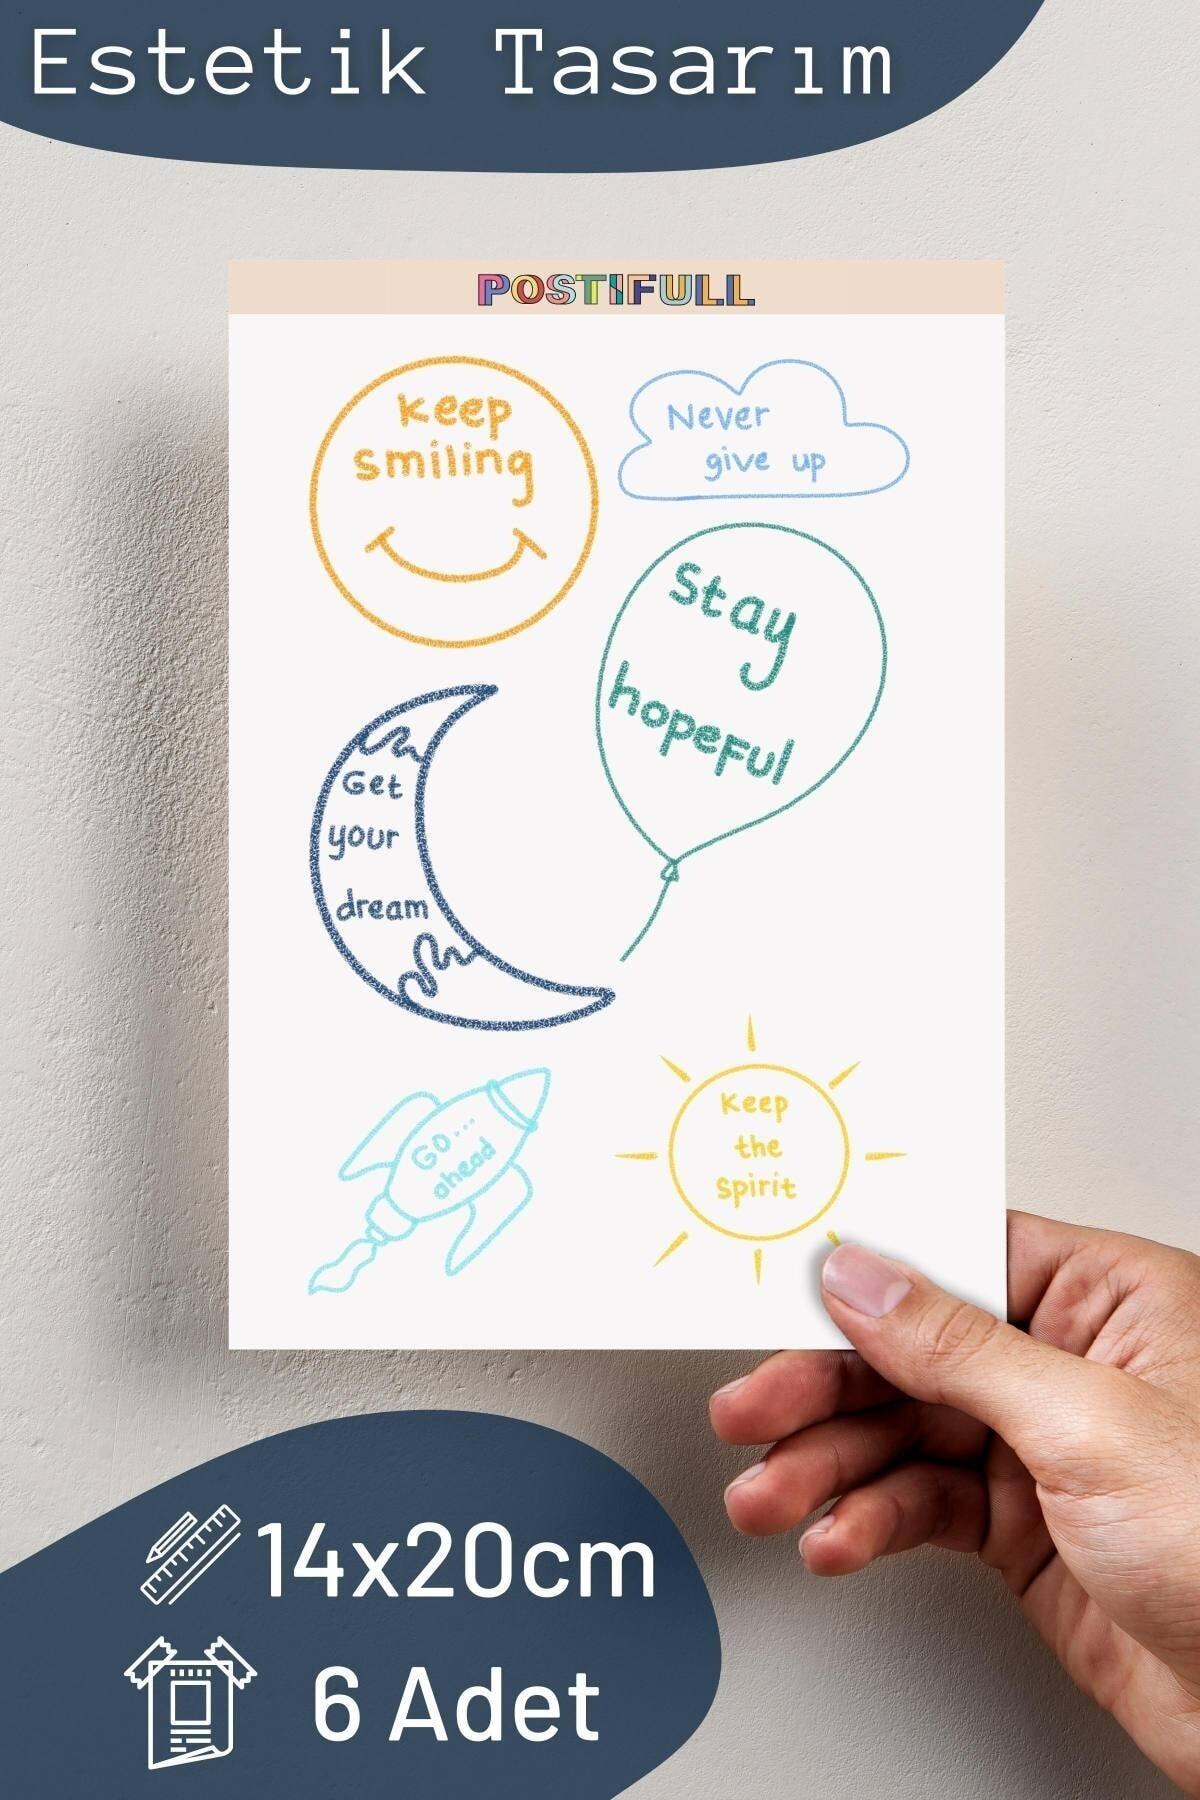 Estetik Tasarım
POSTIFULL
Keep
smiling
Never
give up
Stay
hopeful
Get
your
dream
GO...
ahead
Keep
the
Spirit
14x20cm
6 Adet